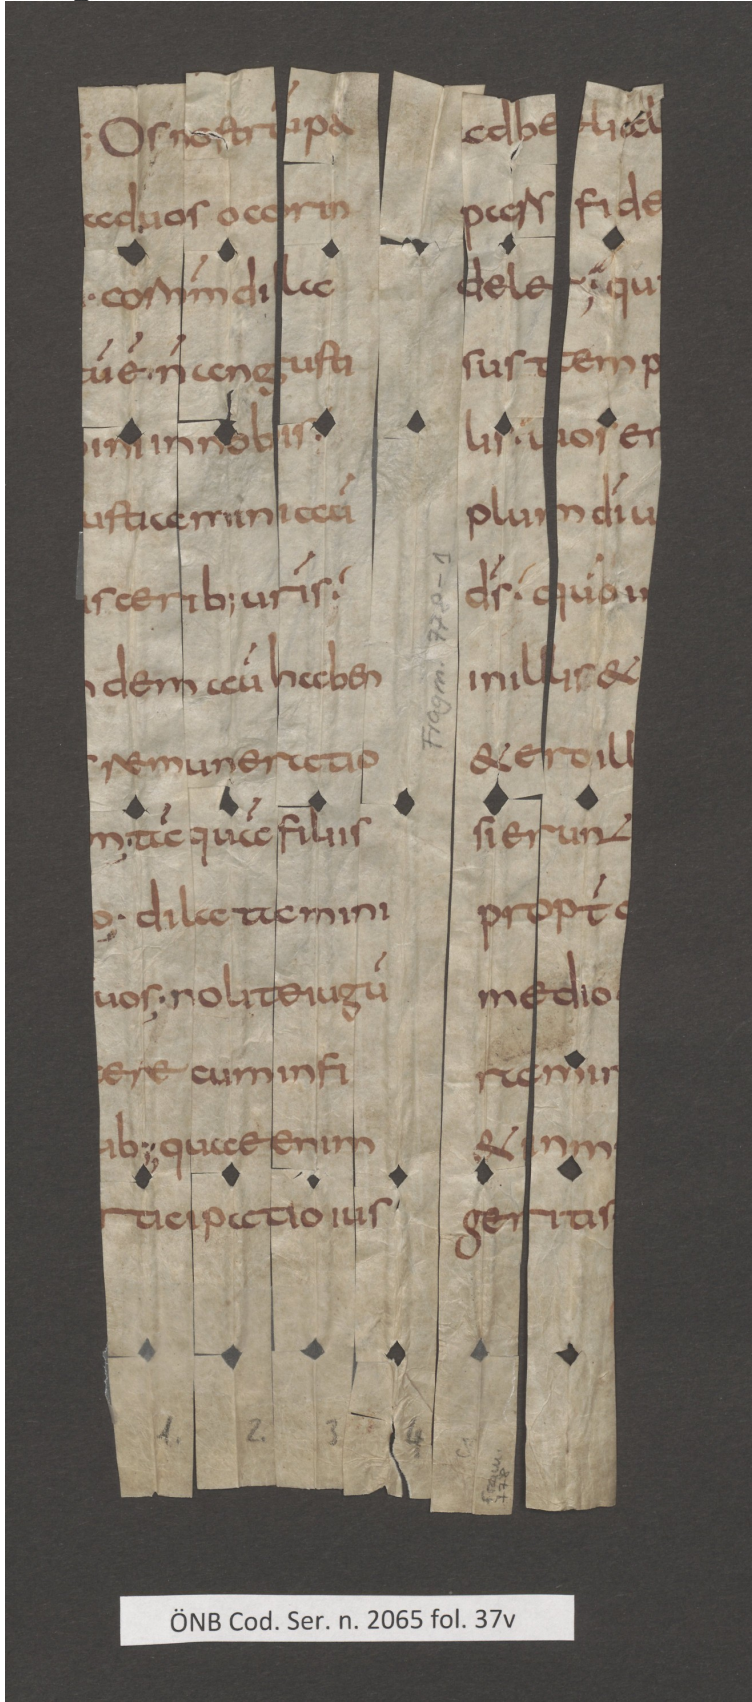 ; Os nostrū pa
aduos o corin
· cor nr̄m dila
tū ē· n̄ angusti
ini in nobis:
ustiamini aū
isceribus uris:
ndem aū haben
remuneratio
m; tāquā filiis
o· dilatamini
uos; nolite iugū
cere cum infi
ib; quae enim
rticipatio ius
ad belial
pars fide
deles; qu
sus temp
lis· uos en
plum di uu
ds: quon
in illis &
& ero ill
si erunt
propt
medio
ramin
& inm
geritis
Fragm. 778-1
1.
2.
3
4
Fragm. 778
ÖNB Cod. Ser. n. 2065 fol. 37v